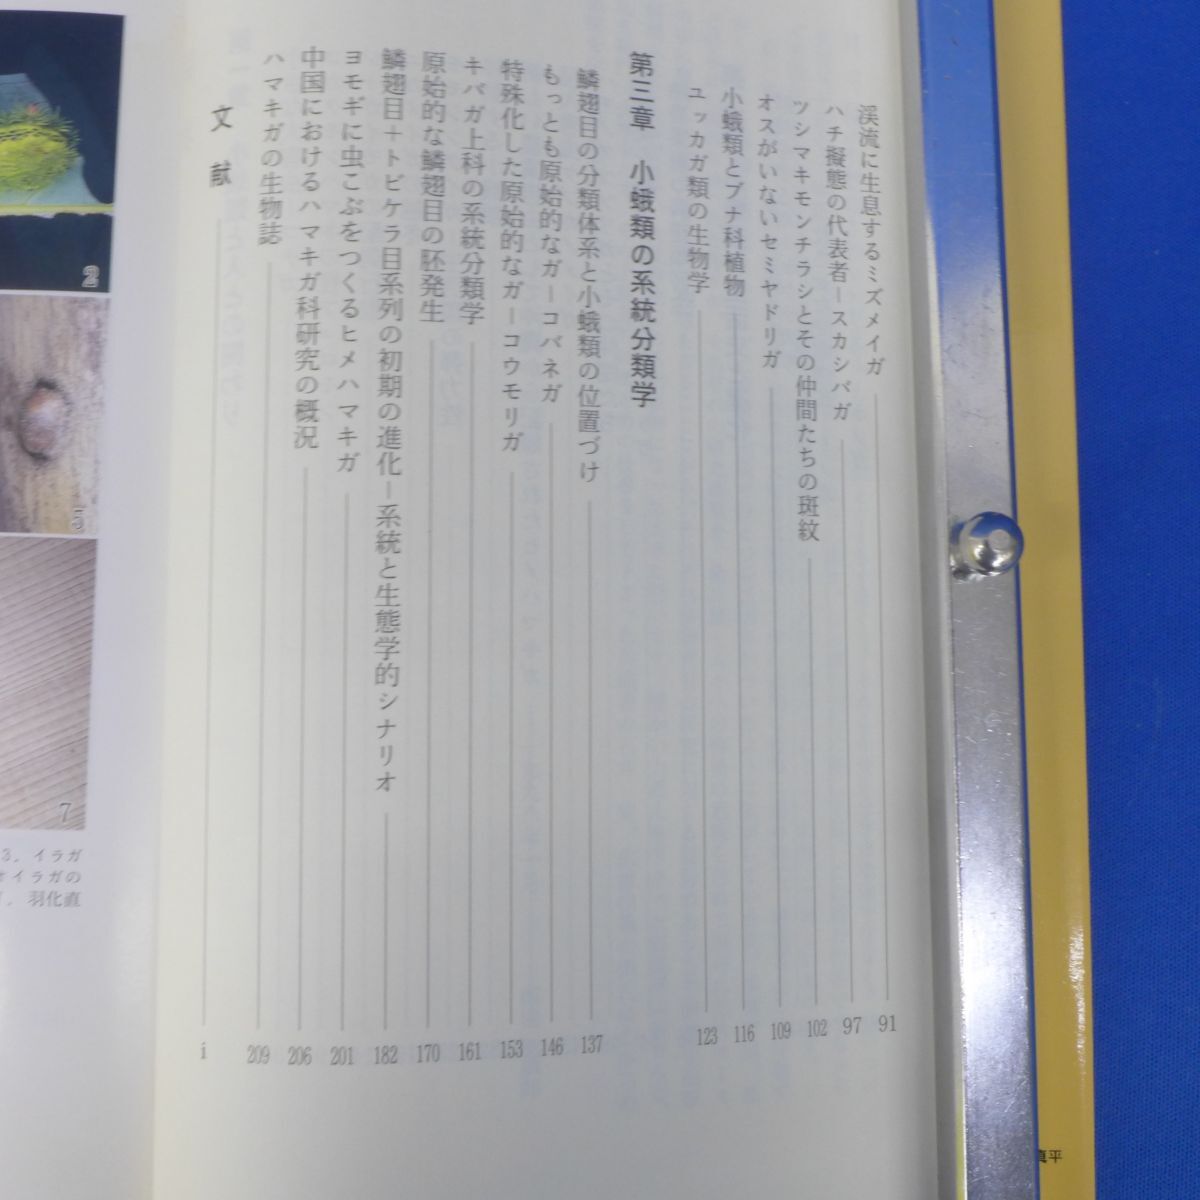 渓流に生息するミズメイガ 91
ハチ擬態の代表者ースカシバガ 97
ツシマキモンチラシとその仲間たちの斑紋 102
オスがいないセミヤドリガ 109
小蛾類とブナ科植物 116
ユッカガ類の生物学 123
第三章 小蛾類の系統分類学
鱗翅目の分類体系と小蛾類の位置づけ 137
もっとも原始的なガーコバネガ 146
特殊化した原始的なガーコウモリガ 153
キバガ上科の系統分類学 161
原始的な鱗翅目の胚発生 170
鱗翅目＋トビケラ目系列の初期の進化ー系統と生態学的シナリオ 182
ヨモギに虫こぶをつくるヒメハマキガ 201
中国におけるハマキガ科研究の概況 206
ハマキガの生物誌 209
文献 i
2
5
7
3. イラガ
オイラガの
羽化直
真平